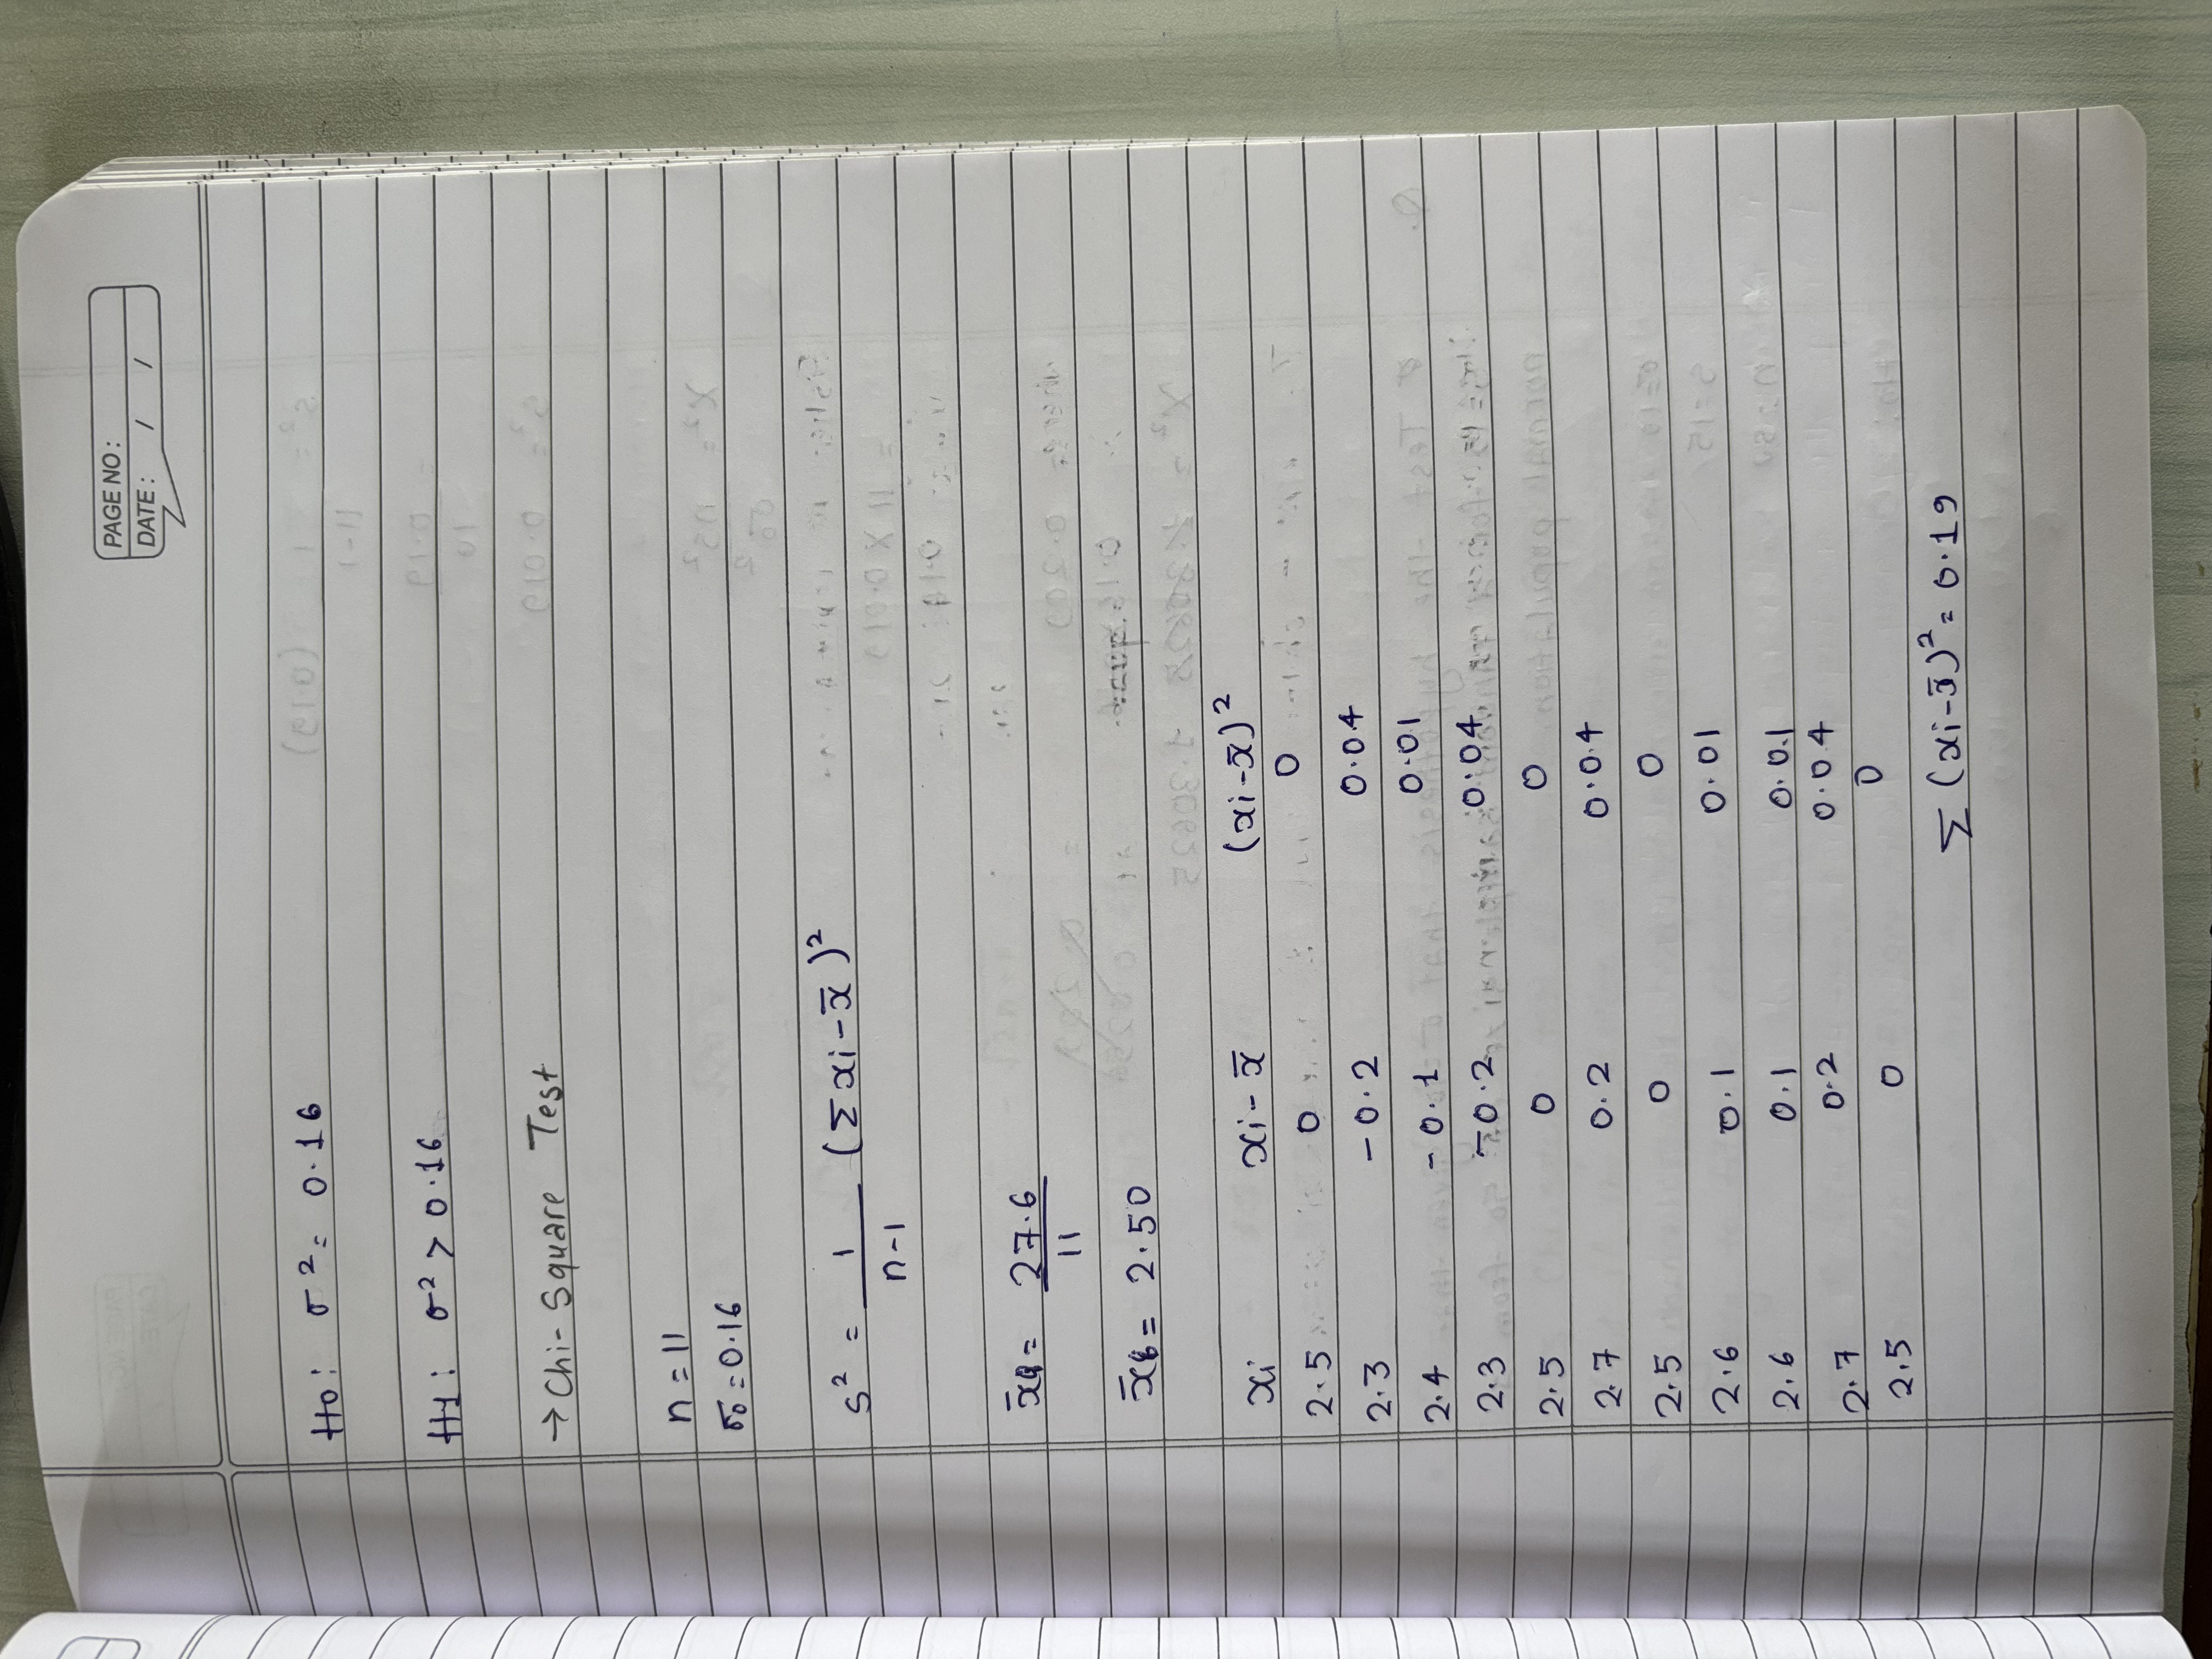 PAGE NO:
DATE: / /
H0: σ² = 0.16
H1: σ² > 0.16
→ Chi-Square Test
n = 11
σ0 = 0.16
s² = 1/n-1 (Σ xi - x̄)²
x̄ = 27.6/11
x̄ = 2.50
xi xi - x̄ (xi - x̄)²
2.5 0 0
2.3 -0.2 0.04
2.4 -0.1 0.01
2.3 -0.2 0.04
2.5 0 0
2.7 0.2 0.04
2.5 0 0
2.6 0.1 0.01
2.6 0.1 0.01
2.7 0.2 0.04
2.5 0 0
Σ (xi - x̄)² = 0.19